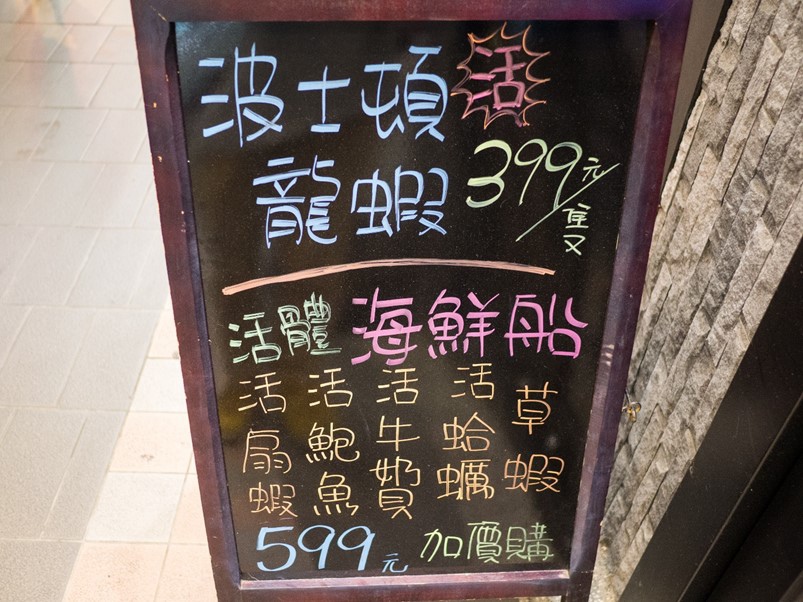 波士頓 活
龍蝦 399元/隻
活體 海鮮船
活扇蝦
活鮑魚
活牛奶貝
活蛤蠣
草蝦
599元 加價購